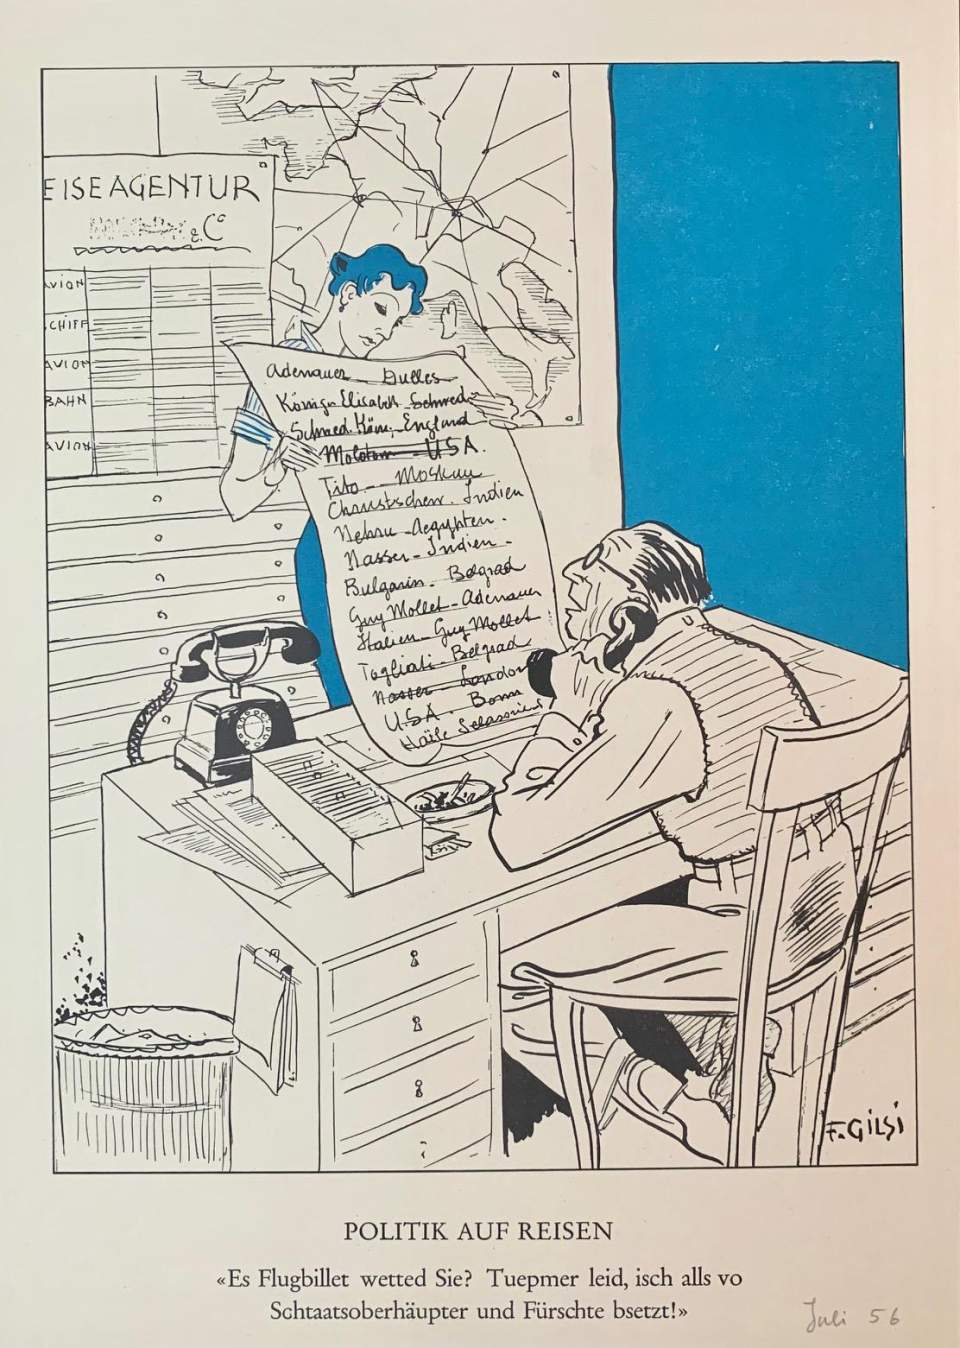 EISEAGENTUR
& Co
AVION
CHIFF
AVION
BAHN
AVION
Adenauer Dulles
Königi Elisabeth Schwed.
Schwed. Köni. England
Molotow - USA.
Tito - Moskau
Chrustschew. Indien
Nehru - Aegypten.
Nasser - Indien -
Bulganin - Belgrad
Guy Mollet - Adenauer
Italien - Guy Mollet
Togliati - Belgrad
Nasser - London
USA - Bonn
Haile Selassies
F. GILSI
POLITIK AUF REISEN
«Es Flugbillet wetted Sie? Tuepmer leid, isch alls vo
Schtaatsoberhäupter und Fürschte bsetzt!»
Juli 56